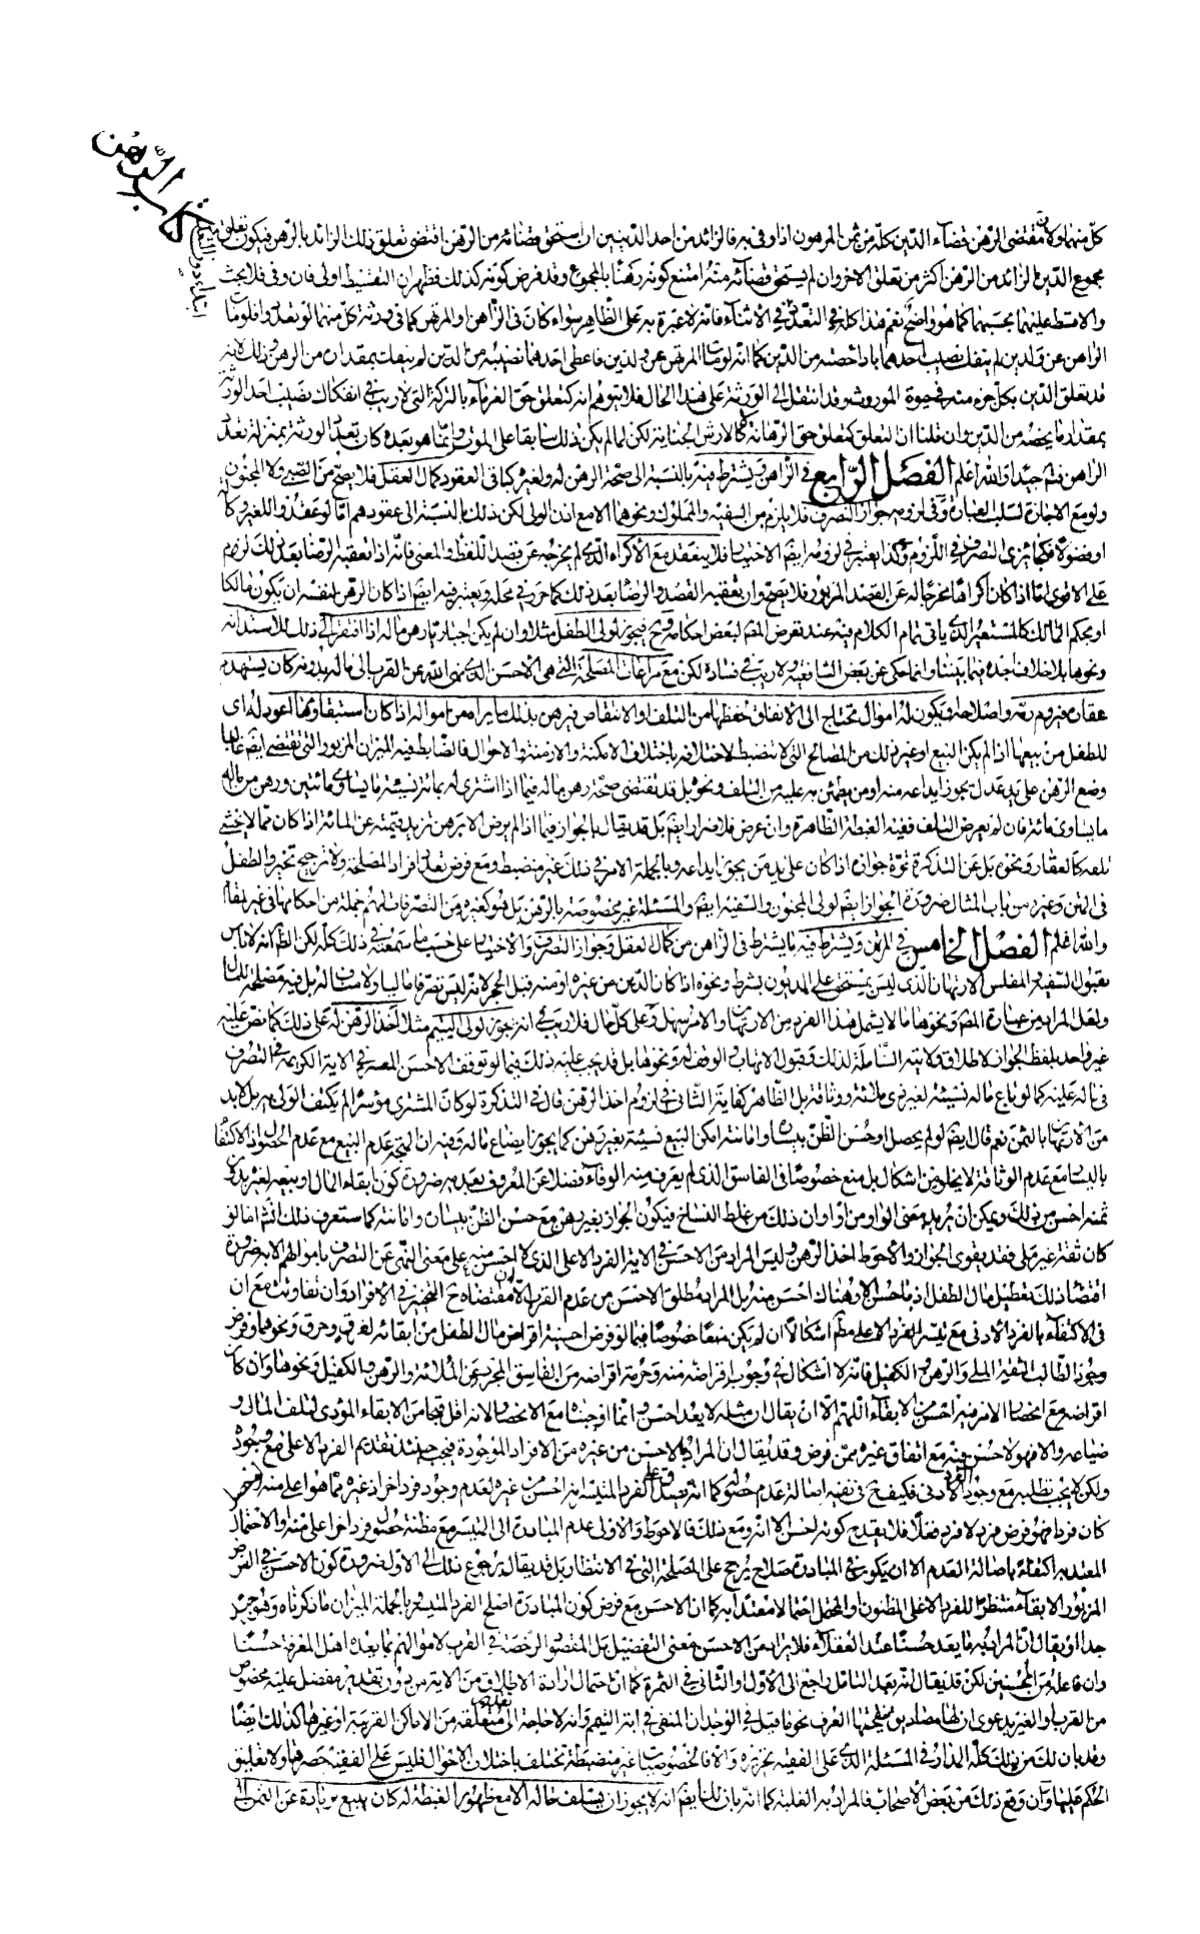 كتاب الرهن
كل منهما ولان مقتضى الرهن قضاء الدين كله من ثمن المرهون اذا وفى به فالزائد من احد الدينين ان استحق قضائه من الرهن اقتضى تعلق ذلك الزائد بالرهن فيكون تعلق
مجموع الدين الزائد من الرهن اكثر من تعلق الاخر وان لم يستحق قضائه منه امتنع كونه رهنا بالمجموع وقد فرض كونه كذلك فظهر ان التقسيط اولى فان وفى فلا بحث
والا قسط عليهما بحسبهما كما هو واضح نعم هذا كله في التعدد في الابتداء اما في الاثناء فانه لا عبرة به على الظاهر سواء كان في الراهن او المرتهن كما في ورثة كل منهما لو تعددوا فلو مات
الراهن عن ولدين لم ينفك نصيب احدهما باداء حصته من الدين كما انه لو مات المرتهن عن ولدين فاعطى احدهما نصيبه من الدين لم ينفك بمقداره من الرهن وذلك لانه
قد تعلق الدين بكل جزء منه في حيوة الموروث وقد انتقل الى الورثة على هذا الحال فلا يتوهم انه كتعلق حق الغرماء بالتركة التي لا ريب في انفكاك نصيب احد الورثة
بمقدار ما يخصه من الدين وان قلنا ان التعلق كتعلق حق الرهانة لا كالارش الجناية لكن لما لم يكن ذلك سابقا على الموت وانما هو بعده كان تعدد الورثة بمنزلة تعدد
الراهن فتأمل جيدا والله اعلم الفصل الرابع في الراهن ويشترط فيه بالنسبة الى صحة الرهن له ولغيره كباقي العقود كمال العقل فلا يصح من الصبي ولا المجنون
ولو مع الاجازة لسلب العبارة وفي لزومه جواز التصرف فلا يلزم من السفيه والمملوك ونحوهما الا مع اذن الولي لكن ذلك بالنسبة الى عقودهم اما لو عقدوا للغير وكالة
او فضولا فيكفي اثرى التصرف في اللزوم وكذا يعتبر في لزومه ايضا الاختيار فلا ينعقد مع الاكراه الذي لم يخرجه عن قصد اللفظ والمعنى فانه اذا تعقبه الرضا بعد ذلك لزوم
على الاقوى اما اذا كان اكراها مخرجا له عن القصد المزبور فلا يصح وان تعقبه القصد والرضا بعد ذلك كما حرر في محله ويعتبر فيه ايضا اذا كان الرهن لنفسه ان يكون مالكا
او بحكم المالك كالمستعير الذي ياتي تمام الكلام فيه عند تعرض المصنف لبعض احكامه وح فيجوز لولي الطفل مثلا وان لم يكن اجباريا رهن ماله اذا افتقر الى ذلك للاستدانة
ونحوها بلا خلاف اجده فيه بيننا وانما حكى عن بعض الشافعية ولا ريب في فساده لكن مع مراعات المصلحة التي هي الاحسن الذي نهى الله عن القرب الى ماله بدونه كان يستهدم
عقاره فيروم رمه واصلاحه او يكون له اموال تحتاج الى الانفاق لحفظها من التلف والانتقاص فيرهن بذلك ما يراه من امواله اذا كان استبقاؤها اعود له اى
للطفل من بيعها اذا لم يمكن البيع او غير ذلك من المصالح التي لا تنضبط لاختلافه باختلاف الامكنة والازمنة والاحوال فالضابط فيه الميزان المزبور التي تقتضي ايضا غالبا
وضع الرهن على يد عدل يجوز ايداعه منه او من يطمئن به عليه من التلف ونحوه بل قد تقتضي صحة رهن ماله فيما اذا اشترى له بمائة نسيئة ما يساوى مائتين ورهن من ماله
ما يساوى مائة فان لم يعرض التلف ففيه الغبطة الظاهرة وان عرض فلا ضرار ايضا بل قد يقال بالجواز فيما اذا لم يرض الا برهن تزيد قيمته عن المائة اذا كان مما لا يخشى
تلفه كالعقار ونحوه بل عن التذكرة قوة جوازه اذا كان على يد من يجوز ايداعه وبالجملة الامر في ذلك غير منضبط ومع فرض تعارض افراد المصلحة ولا ترجيح تخير والطفل
في المتن وغيره من باب المثال ضرورة الجواز ايضا لولي المجنون والسفيه ايضا والمسئلة غير مخصوصة بالرهن بل هو كغيره من التصرفات لهم جملة من احكامها في غير المقام
والله اعلم الفصل الخامس في المرتهن ويشترط فيه ما يشترط في الراهن من كمال العقل وجواز التصرف والاختيار على حسب ما سمعته في ذلك كله لكن الظاهر انه لا باس
بقبول السفيه والمفلس الارتهان الذي ليس بمستحق على المديون بشرط ونحوه اذا كان الدين من غيره او منه قبل الحجر لانه ليس تصرفا ماليا ولا مناف له بل فيه مصلحة لذلك
ولعل المراد من عبارة المصنف ونحوها ما لا يشمل هذا الفرد من الارتهان والامر سهل وعلى كل حال فلا ريب في انه يجوز لولي اليتيم مثلا اخذ الرهن له على ذلك كما نص عليه
غير واحد بلفظ الجواز لاطلاق ولايته الشاملة لذلك وقبول الاتهاب والوقف له ونحوها بل قد يجب عليه ذلك فيما لو توقف الاحسن المحصر في الاية الكريمة في التصرف
في ماله عليه كما لو باع ماله نسيئة لغير ذي ملائة ووثاقة بل الظاهر كفاية الثاني في لزوم اخذ الرهن قال في التذكرة لو كان المشترى موسرا لم يكتف الولي به بل لا بد
من الارتهان بالثمن نعم قال ايضا لو لم يحصل او حسن الظن بيساره وامانته امكن البيع نسيئة بغير رهن كما يجوز ايضاع ماله وفيه ان المتجه عدم البيع مع عدم الحصول والاكتفاء
باليسار مع عدم الوثاقة لا يخلو من اشكال بل منع خصوصا في الفاسق الذي لم يعرف منه الوفاء فضلا عن المعروف بعدمه ضرورة كون ابقاء المال او بيعه لغيره بدون
ثمنه احسن من ذلك ويمكن ان يريد معنى الواو من او او ان ذلك من غلط النساخ فيكون الجواز بغير رهن مع حسن الظن بيساره وامانته كما ستعرف ذلك انشاء اما لو
كان ثقة غير ملي فقد يقوى الجواز والاحوط اخذ الرهن وليس المراد من الاحسن في الاية الفرد الاعلى الذي لا احسن منه على معنى النهي عن التصرف باموالهم الا به ضرورة
اقتضاء ذلك تعطيل مال الطفل اذ ما حسن الا وهناك احسن منه بل المراد مطلق الاحسن من عدم القرب لان مقتضاه ح التخيير في الافراد وان تفاوتت مع ان
في الاكتفاء بالفرد الادنى مع تيسر الفرد الاعلى منه اشكالا ان لم يكن منعا خصوصا فيما لو فرض احسنية اقراض مال الطفل من ابقائه لغرق وحرق ونحوهما وفرض
وجود الطالب الثقة الملي والرهن والكفيل فانه لا اشكال في وجوب اقراضه منه وحرمة اقراضه من الفاسق المجرد عن الملائة والرهن والكفيل ونحوها وان كان
اقراضه مع انحصار الامر فيه احسن من الابقاء اللهم الا ان يقال ان مثله لا يعد احسن وانما اوجبناه مع الانحصار لانه اقل قبحا من الابقاء المؤدى لتلف المال و
ضياعه والا فهو لا حسن فيه مع اتفاق غيره ممن فرض وقد يقال ان المراد بالاحسن من غيره من الافراد الموجودة فيجب حينئذ تقديم الفرد الاعلى مع وجوده
ولكن لا يجب تطلبه مع وجود الفرد الادنى فيكفي ح في نفيه اصالة عدم حصوله كما انه يصدق على الفرد المتيسر انه احسن من غيره لعدم وجود فرد اخر غيره مما هو اعلى منه
كان فردا فهو فرض فرد لا فرد فعلا فلا يقدح كونه احسن الا انه ومع ذلك فالاحوط والاولى عدم المبادرة الى المتيسر مع مظنة حصول فرد اخر اعلى منه والاحتمال
المعتد به اكتفاء باصالة العدم الا ان يكون في المبادرة صلاح يرجح على المصلحة التي في الانتظار بل قد يقال برجوع ذلك الى الاول ضرورة كون الاحسن في الفرض
المزبور الابقاء منتظرا للفرد الاعلى المظنون او المحتمل احتمالا معتدا به كما ان الاحسن مع فرض كون المبادرة اصلح الفرد المتيسر وبالجملة الميزان ما ذكرناه وهو جيد
جدا او يقال ان المراد به ما يعد حسنا عند العقلاء فلا يراد من الاحسن معنى التفضيل بل المقصود الرخصة في القرب لاموالهم بما يعده اهل المعرفة حسنا
وان فاعله من المحسنين لكن قد يقال انه بعد التامل راجع الى الاول او الثاني في الثمرة كما ان احتمال ارادة الاطلاق من الاية من دون تقدير مفضل عليه مخصوص
من القرب او الغير بدعوى ان لها مصاديق ينقحها العرف نحو ما قيل في الوجدان المنفى في اية التيمم وانه لا حاجة الى تقدير متعلقه من الاماكن القريبة او غيرها كذلك ايضا
وقد بان لك من ذلك كله المدار في المسئلة الذي على الفقيه تحريره والا فالخصوصيات غير منضبطة تختلف باختلاف الاحوال فليس على الفقيه حصرها ولا تعليق
الحكم عليها وان وقع ذلك من بعض الاصحاب فالمراد به الغلبة كما انه بان لك ايضا انه لا يجوز ان يستلف ماله الا مع ظهور الغبطة له كان يبيع بزيادة عن الثمن الى